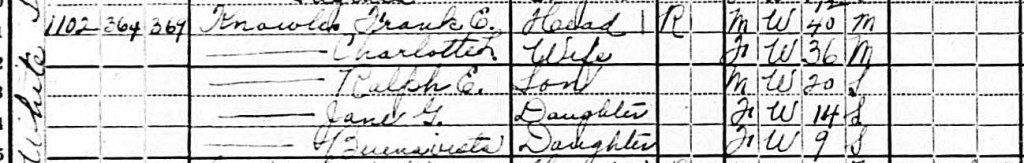 1102 364 367 Knowles Frank E. Head 1 R M W 40 M
Charlotte Wife F W 36 M
Ralph E. Son M W 20 S
Jane G. Daughter F W 14 S
Buenavista Daughter F W 9 S
White